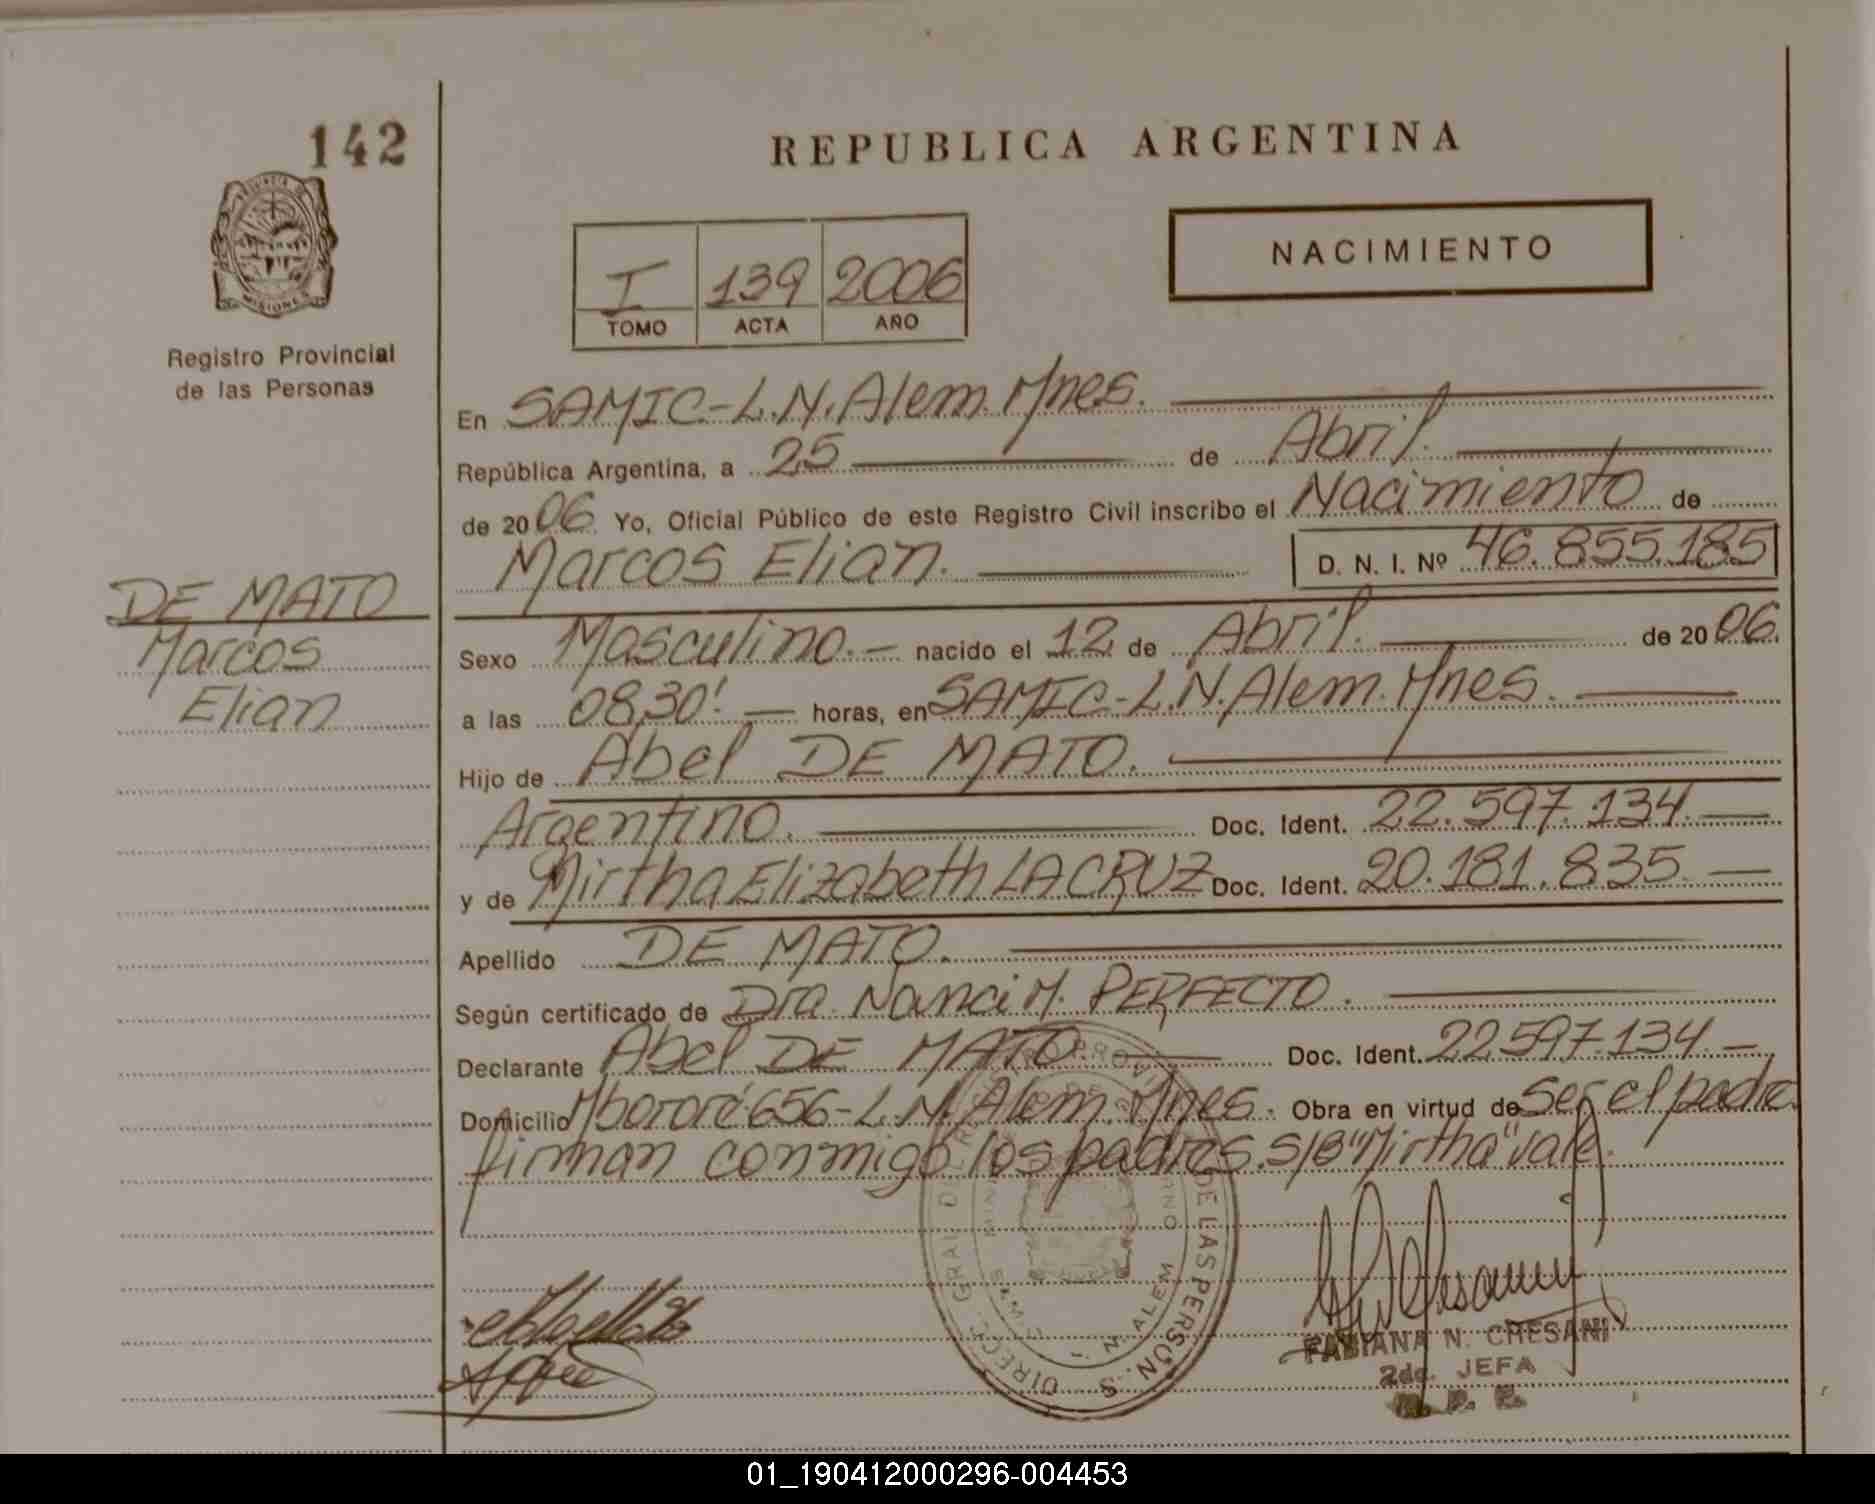 142
REPUBLICA ARGENTINA
PROVINCIA DE
MISIONES
NACIMIENTO
I 139 2006
TOMO ACTA AÑO
Registro Provincial
de las Personas
En SAMIC-L.N.Alem.Mnes.
República Argentina, a 25 de Abril.
de 2006 Yo, Oficial Público de este Registro Civil inscribo el Nacimiento de
Marcos Elian. D. N. I. Nº 46.855.185
DE MATO
Marcos
Elian
Sexo Masculino.- nacido el 12 de Abril. de 2006.
a las 08,30' horas, en SAMIC-L.N.Alem.Mnes.
Hijo de Abel DE MATO.
Argentino. Doc. Ident. 22.597.134.
y de Mirtha Elizabeth LA CRUZ Doc. Ident. 20.181.835.
Apellido DE MATO.
Según certificado de Dra. Nanci M. PERFECTO.
Declarante Abel DE MATO. Doc. Ident. 22.597.134.
Domicilio Mbororé 656-L.N.Alem.Mnes. Obra en virtud de Ser el padre
firman conmigo los padres. S/B "Mirtha" vale.
DE LAS PERSON.S
L. N. ALEM
DIRECC. GRAL. DEL
FABIANA N. CHESANI
2da. JEFA
R. P. P.
01_190412000296-004453